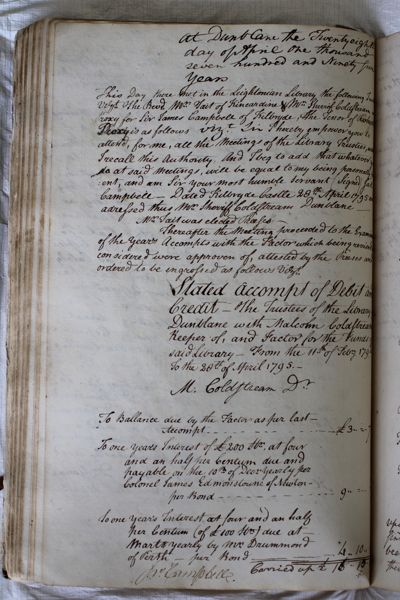 At Dunblane the Twenty eight
day of April One thousand
seven hundred and Ninety five
Years
This Day there met in the Leightonian Library the following
Vizt The Revd Mr Tait of Kincardine & Mr Sheriff Coldstream
Proxy for Sir James Campbell of Kilbryde, the Tenor of
Proxy is as follows vizt Sir I hereby empower you to
attend, for me, all the Meetings of the Library Trustees, until
I recall this Authority, And I beg to add that whatever
at said Meetings, will be equal to my being personally
ent, and am Sir your most humble Servant, Signed Jas
Campbell — Dated Kilbryde Castle 28th April 1795 and
adressed thus Mr Sheriff Coldstream Dunblane
Mr Tait was elected Preses —
Thereafter the Meeting proceeded to the Exam
of the Years Accompts with the Factor which being revised
considered were approven of, attested by the Preses and
ordered to be engrossed as follows Vizt
Stated Accompt of Debit and
Credit — The Trustees of the Library
Dunblane with Malcolm Coldstream
Keeper of, and Factor for the Funds
said Library — From the 11th of Febry 179
to the 28th of April 1795 —
M. Coldstream Dr
To Ballance due by the Factor as per last
Accompt £3
To one Years Interest of £200 Str. at four
and an half per Centum due and
payable on the 10th of Decr yearly per
Colonel James Edmonstoune of Newton
per Bond 9
To one Years Interest at four and an half
per Centum (of £100 Str.) due at
Marts yearly by Mr Drummond
of Perth — per Bond 4 10
Carried up £ 16 10
Jas Campbell